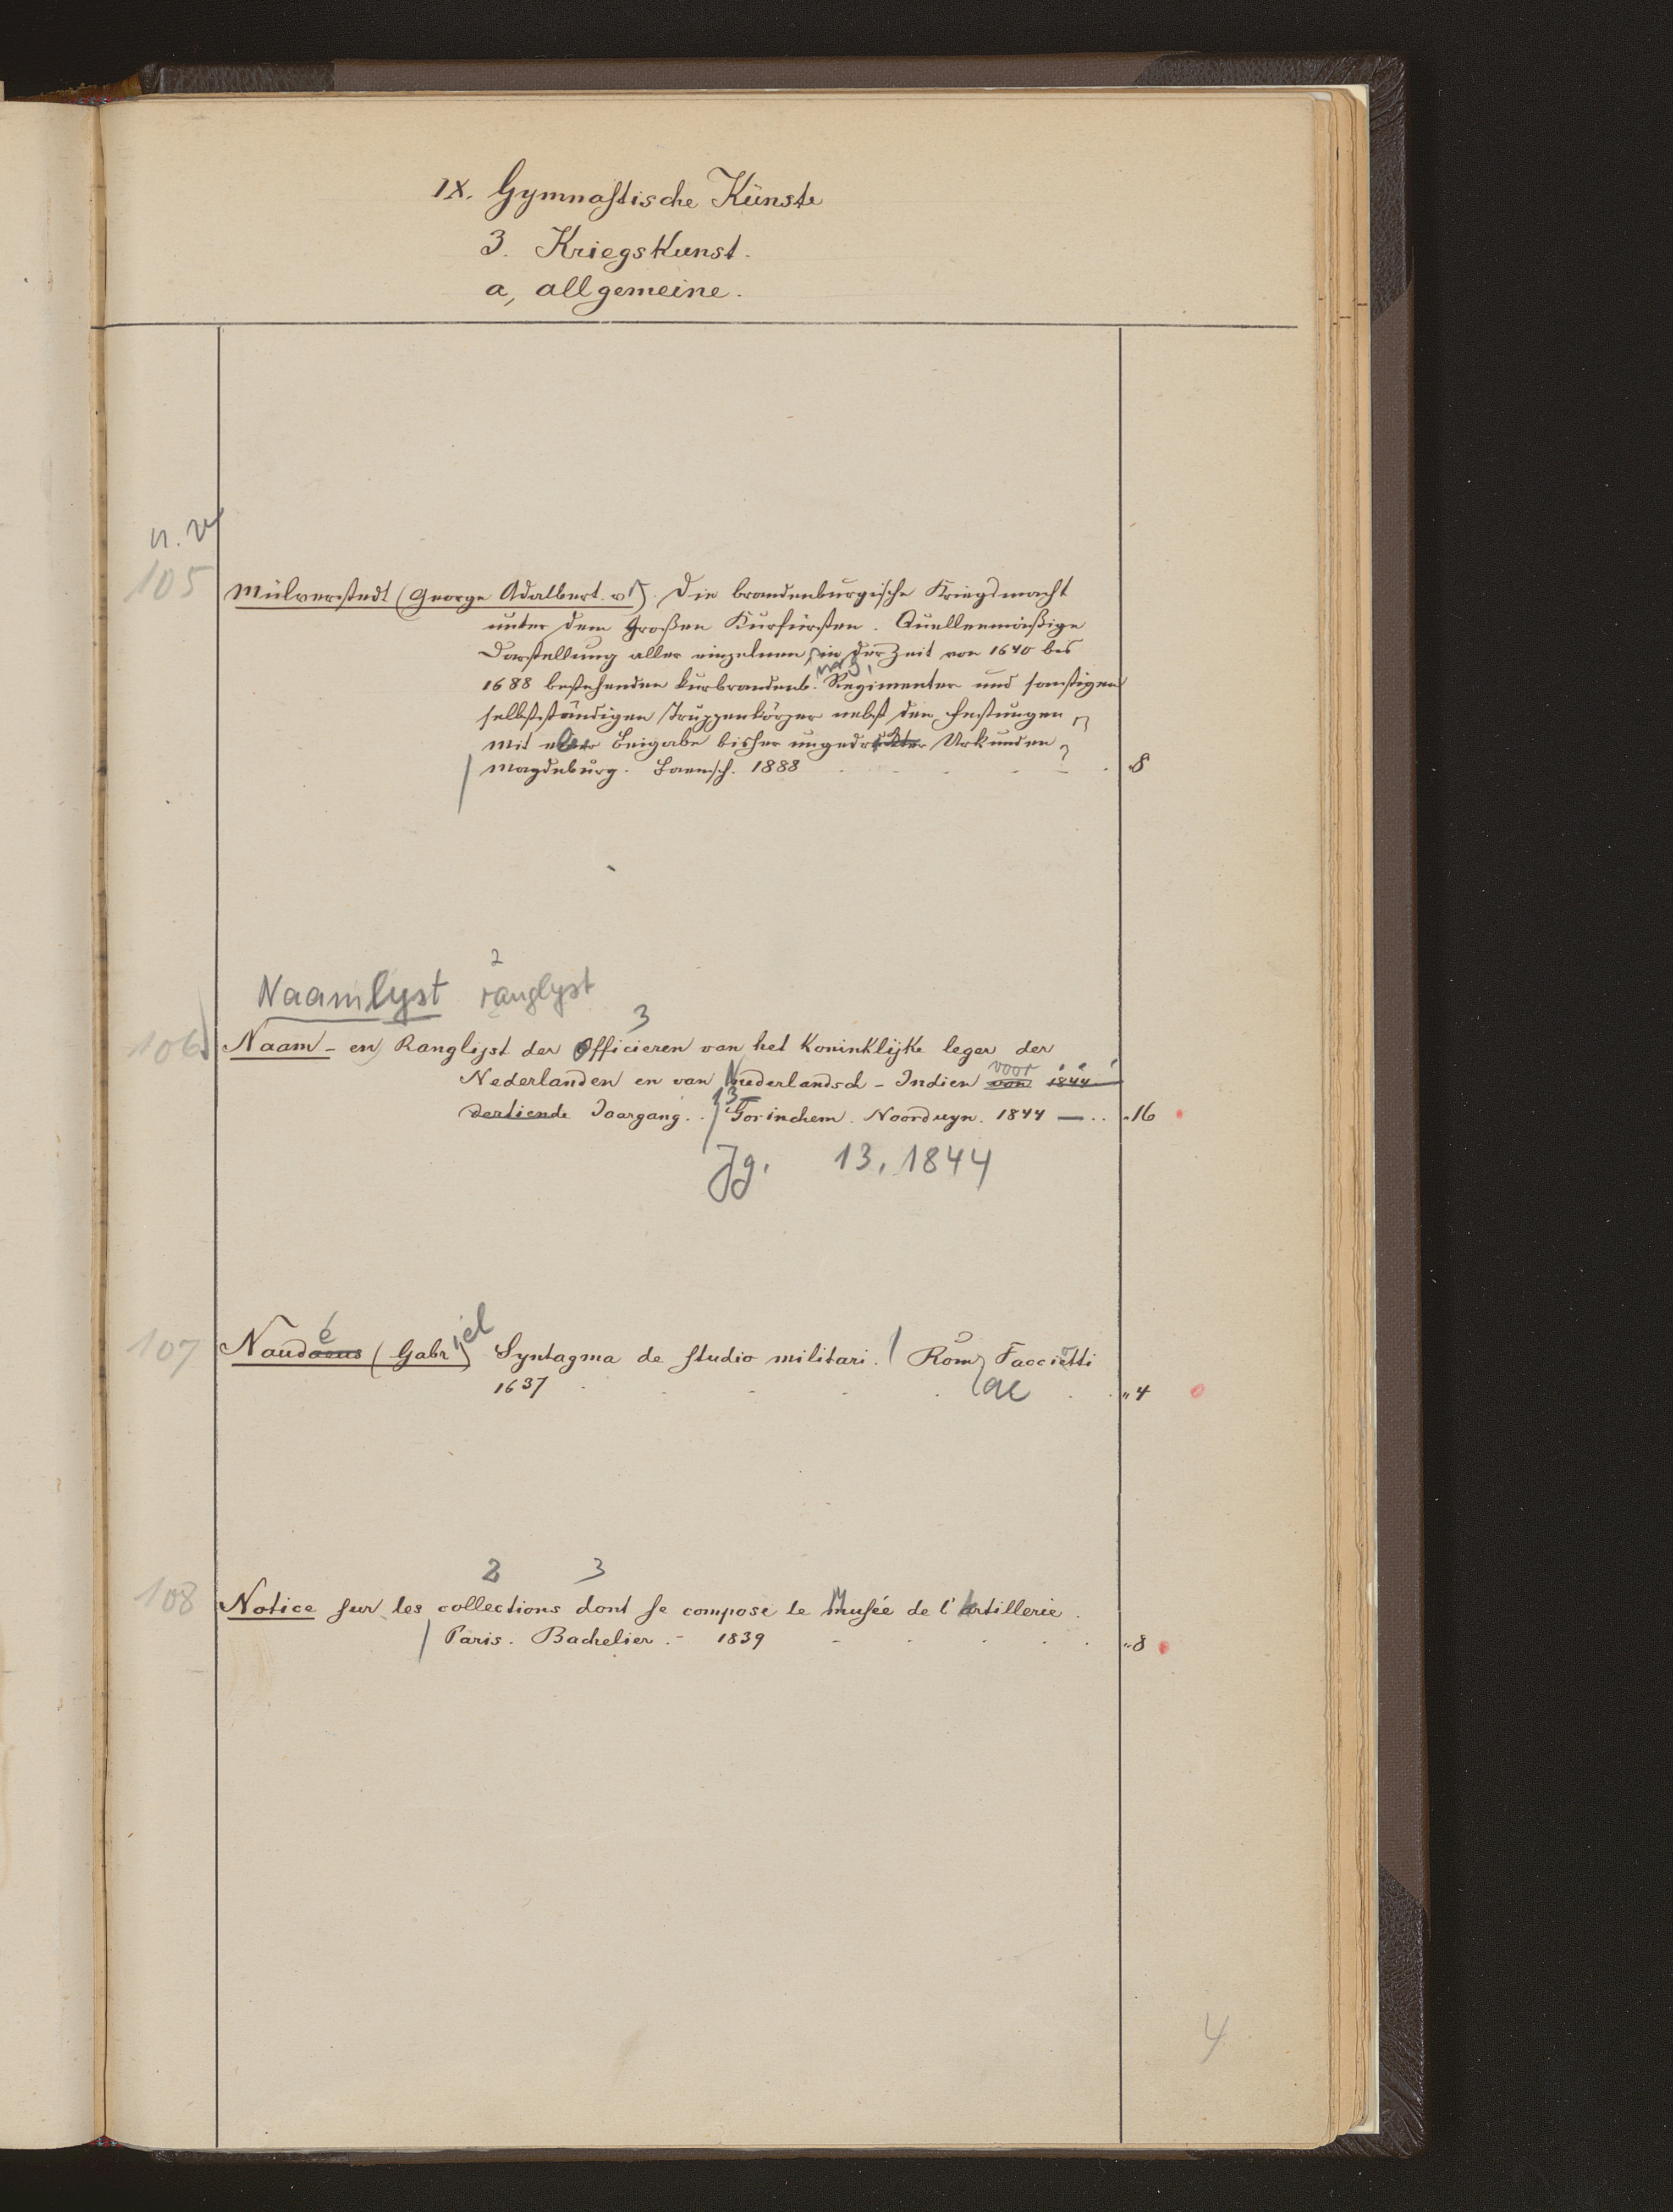 IX. Gymnastische Künste
3. Kriegskunst.
a, allgemeine.
n. v
105
Mülverstedt (George Adalbert. v). Die brandenburgische Kriegsmacht
unter dem Großen Kurfürsten. Quellenmäßige
Darstellung aller einzelnen, in der Zeit von 1640 bis
1688 bestehenden kurbrandenb. Regimenter und sonstigen
selbstständigen Truppenkörper nebst den Festungen
mit Beigabe bisher ungedruckter Urkunden
Magdeburg. Baensch. 1888 8
2
Naamlyst ranglyst
3
106 Naam- en Ranglijst der Officieren van het Koninklijke leger der
voor
Nederlanden en van Nederlandsch-Indien van 1844
13
dertiende Jaargang.. Gorinchem. Noorduyn. 1844 — .. 16
Jg. 13, 1844
é iel
107 Naudaeus (Gabr) Syntagma de studio militari. Rom Facciotti
ae
1637 "4
2 3
108 Notice sur les collections dont se compose le Musée de l'Artillerie.
Paris. Bachelier. - 1839 "8
4